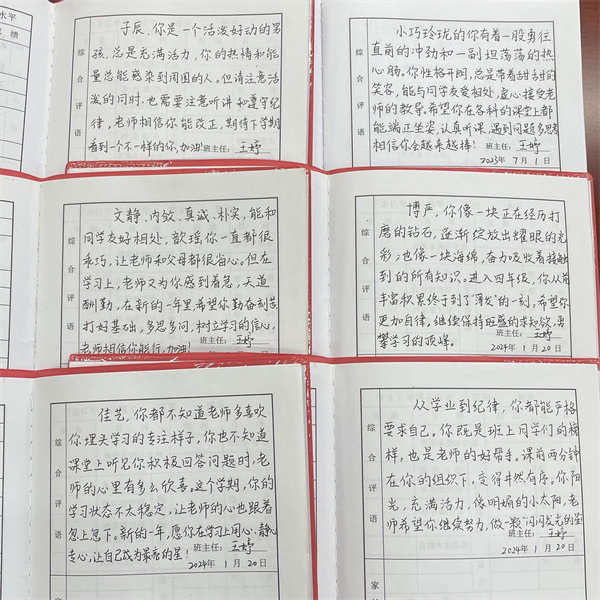 水平
成绩
综合评语
子辰，你是一个活泼好动的男
孩，总是充满活力，你的热情和能
量总能感染到周围的人。但请注意活
泼的同时，也需要注意听讲和遵守纪
律，老师相信你能改正，期待下学期
看到一个不一样的你，加油！
班主任：王婷
综合评语
小巧玲珑的你有着一股勇往
直前的冲劲和一副坦荡荡的热
心肠。你性格开朗，总是带着甜甜的
笑容，能与同学友爱相处，虚心接受老
师的教导。希望你在各科的课堂上都
能端正坐姿，认真听课，遇到问题多思考
相信你会越来越棒！
班主任：王婷
2023年 7月 1日
综合评语
文静、内敛、真诚、朴实，能和
同学友好相处，歆瑶你一直都很
乖巧，让老师和父母都很省心。但在
学习上，老师又为你感到着急，天道
酬勤，在新的一年里，希望你勤奋刻苦
打好基础，多思多问，树立学习的信心，
老师相信你能行，加油！
班主任：王婷
2024年 1月 20日
综合评语
博严，你像一块正在经历打
磨的钻石，逐渐绽放出耀眼的光
彩；也像一块海绵，奋力吸收着接触
到的所有知识。进入四年级，你从前
丰富积累终于到了"薄发"的一刻，希望你
更加自律。继续保持旺盛的求知欲，勇
攀学习的顶峰。
班主任：王婷
2024年 1月 20日
综合评语
佳艺，你都不知道老师多喜欢
你埋头学习的专注样子，你也不知道
课堂上听见你积极回答问题时，老
师的心里有多么欣喜。这个学期，你的
学习状态不太稳定，让老师的心也跟着
忽上忽下。新的一年，愿你在学习上用心、静心
专心，让自己成为最亮的星！
班主任：王婷
2024年 1月 20日
综合评语
从学业到纪律，你都能严格
要求自己。你既是班上同学们的榜
样，也是老师的好帮手。课前两分钟
在你的组织下，变得井然有序。你阳
光，充满活力，像明媚的小太阳，老
师希望你继续努力，做一颗"闪闪发光的星"
班主任：王婷
2024年 1月 20日
家
家